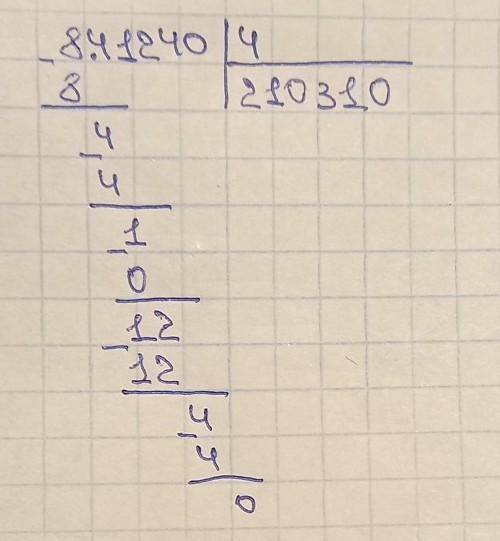 841240 4
-8 210310
-4
4
-1
0
-12
12
-4
4
0